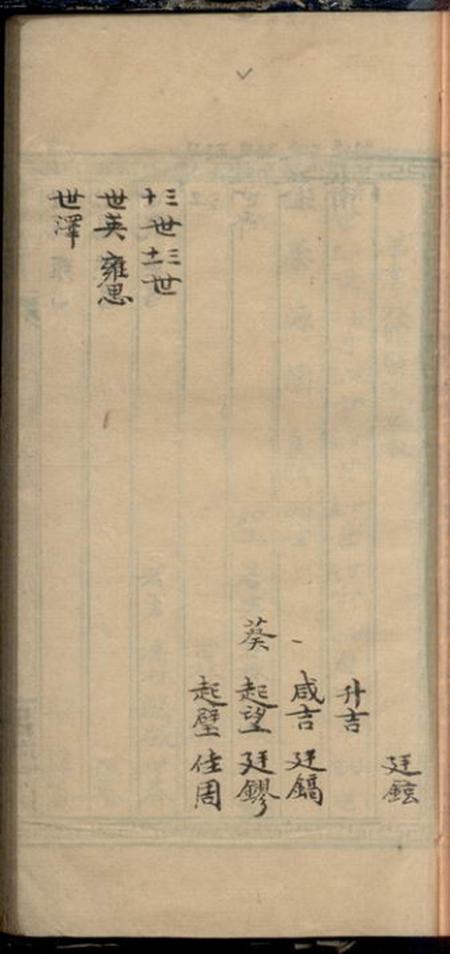 廷鉉
升吉
咸吉 廷鎬
葵 起望 廷鏐
起壁 佳周
十三世 十三世
世英 雍
世澤